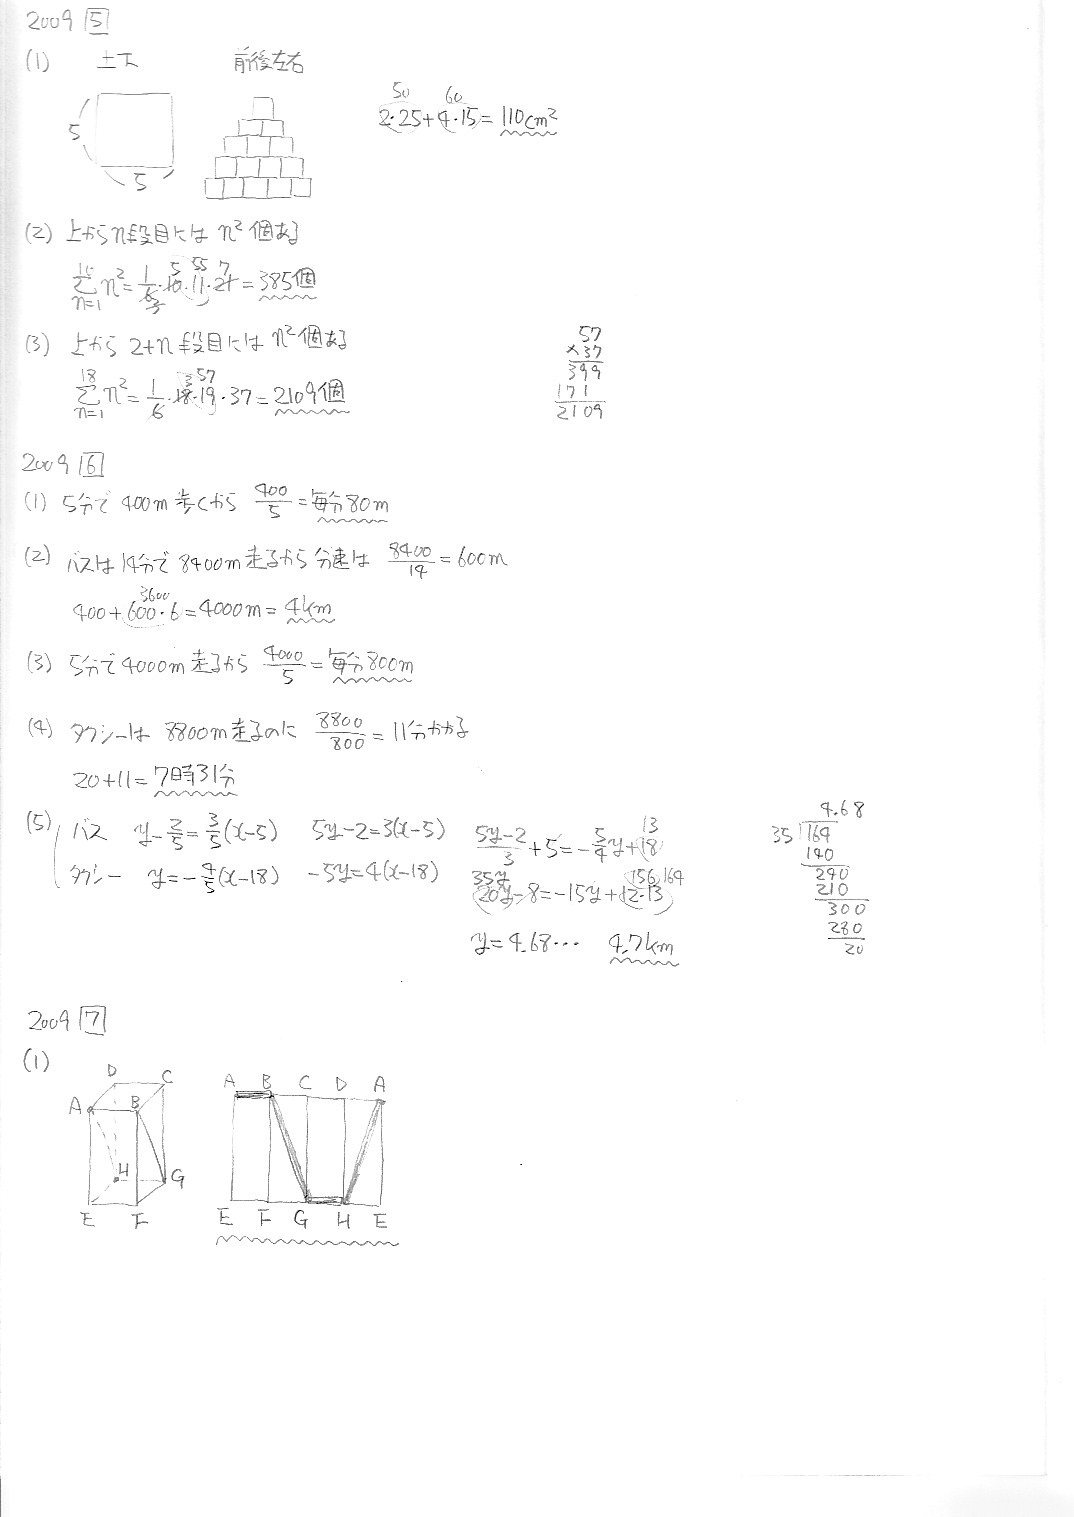 2009 5
(1) 上下 前後左右
5
5
50 60
2・25+4・15=110cm²
(2) 上からn段目にはn²個ある
10Σn=1 n²=1/6・10・11・21=385個
5 55 7
3
(3) 上から2+n段目にはn²個ある
18Σn=1 n²=1/6・18・19・37=2109個
3 57
57
×37
399
171
2109
2009 6
(1) 5分で400m歩くから 400/5=毎分80m
(2) バスは14分で8400m走るから分速は 8400/14=600m
3600
400+600・6=4000m=4km
(3) 5分で4000m走るから 4000/5=毎分800m
(4) タクシーは8800m走るのに 8800/800=11分かかる
20+11=7時31分
(5) バス y-2/5=3/5(x-5) 5y-2=3(x-5) (5y-2)/3+5=-5/4y+18
13
タクシー y=-4/5(x-18) -5y=4(x-18) 20y-8=-15y+12・13
35y 156 164
y=4.68… 4.7km
4.68
35 164
140
240
210
300
280
20
2009 7
(1)
D C
A B
H G
E F
A B C D A
E F G H E